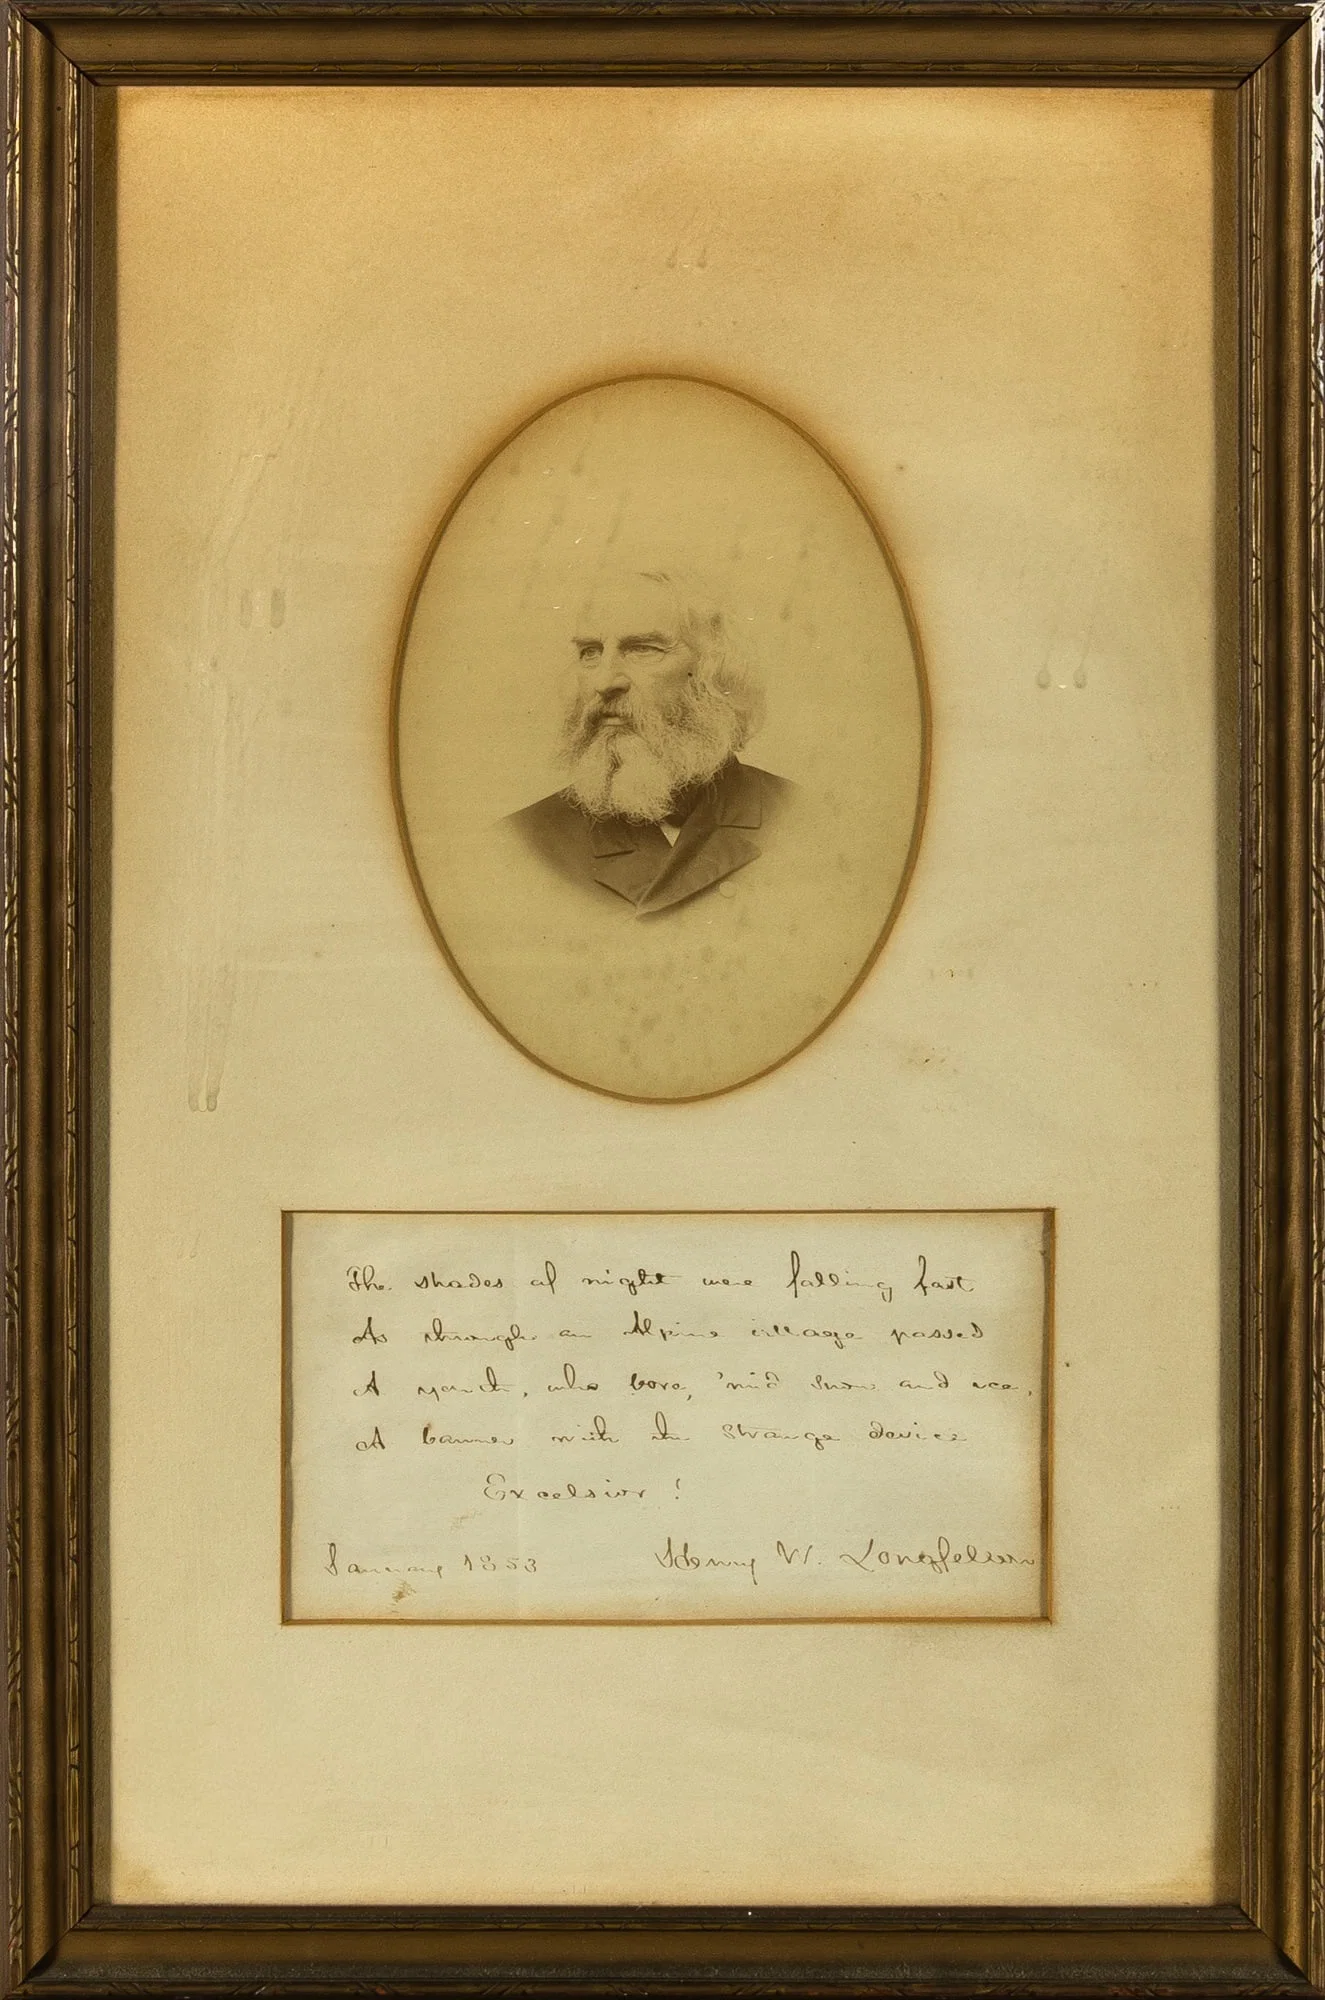 The shades of night were falling fast
As through an Alpine village passed
A youth, who bore, 'mid snow and ice,
A banner with the strange device
Excelsior!
January 1853 Henry W. Longfellow